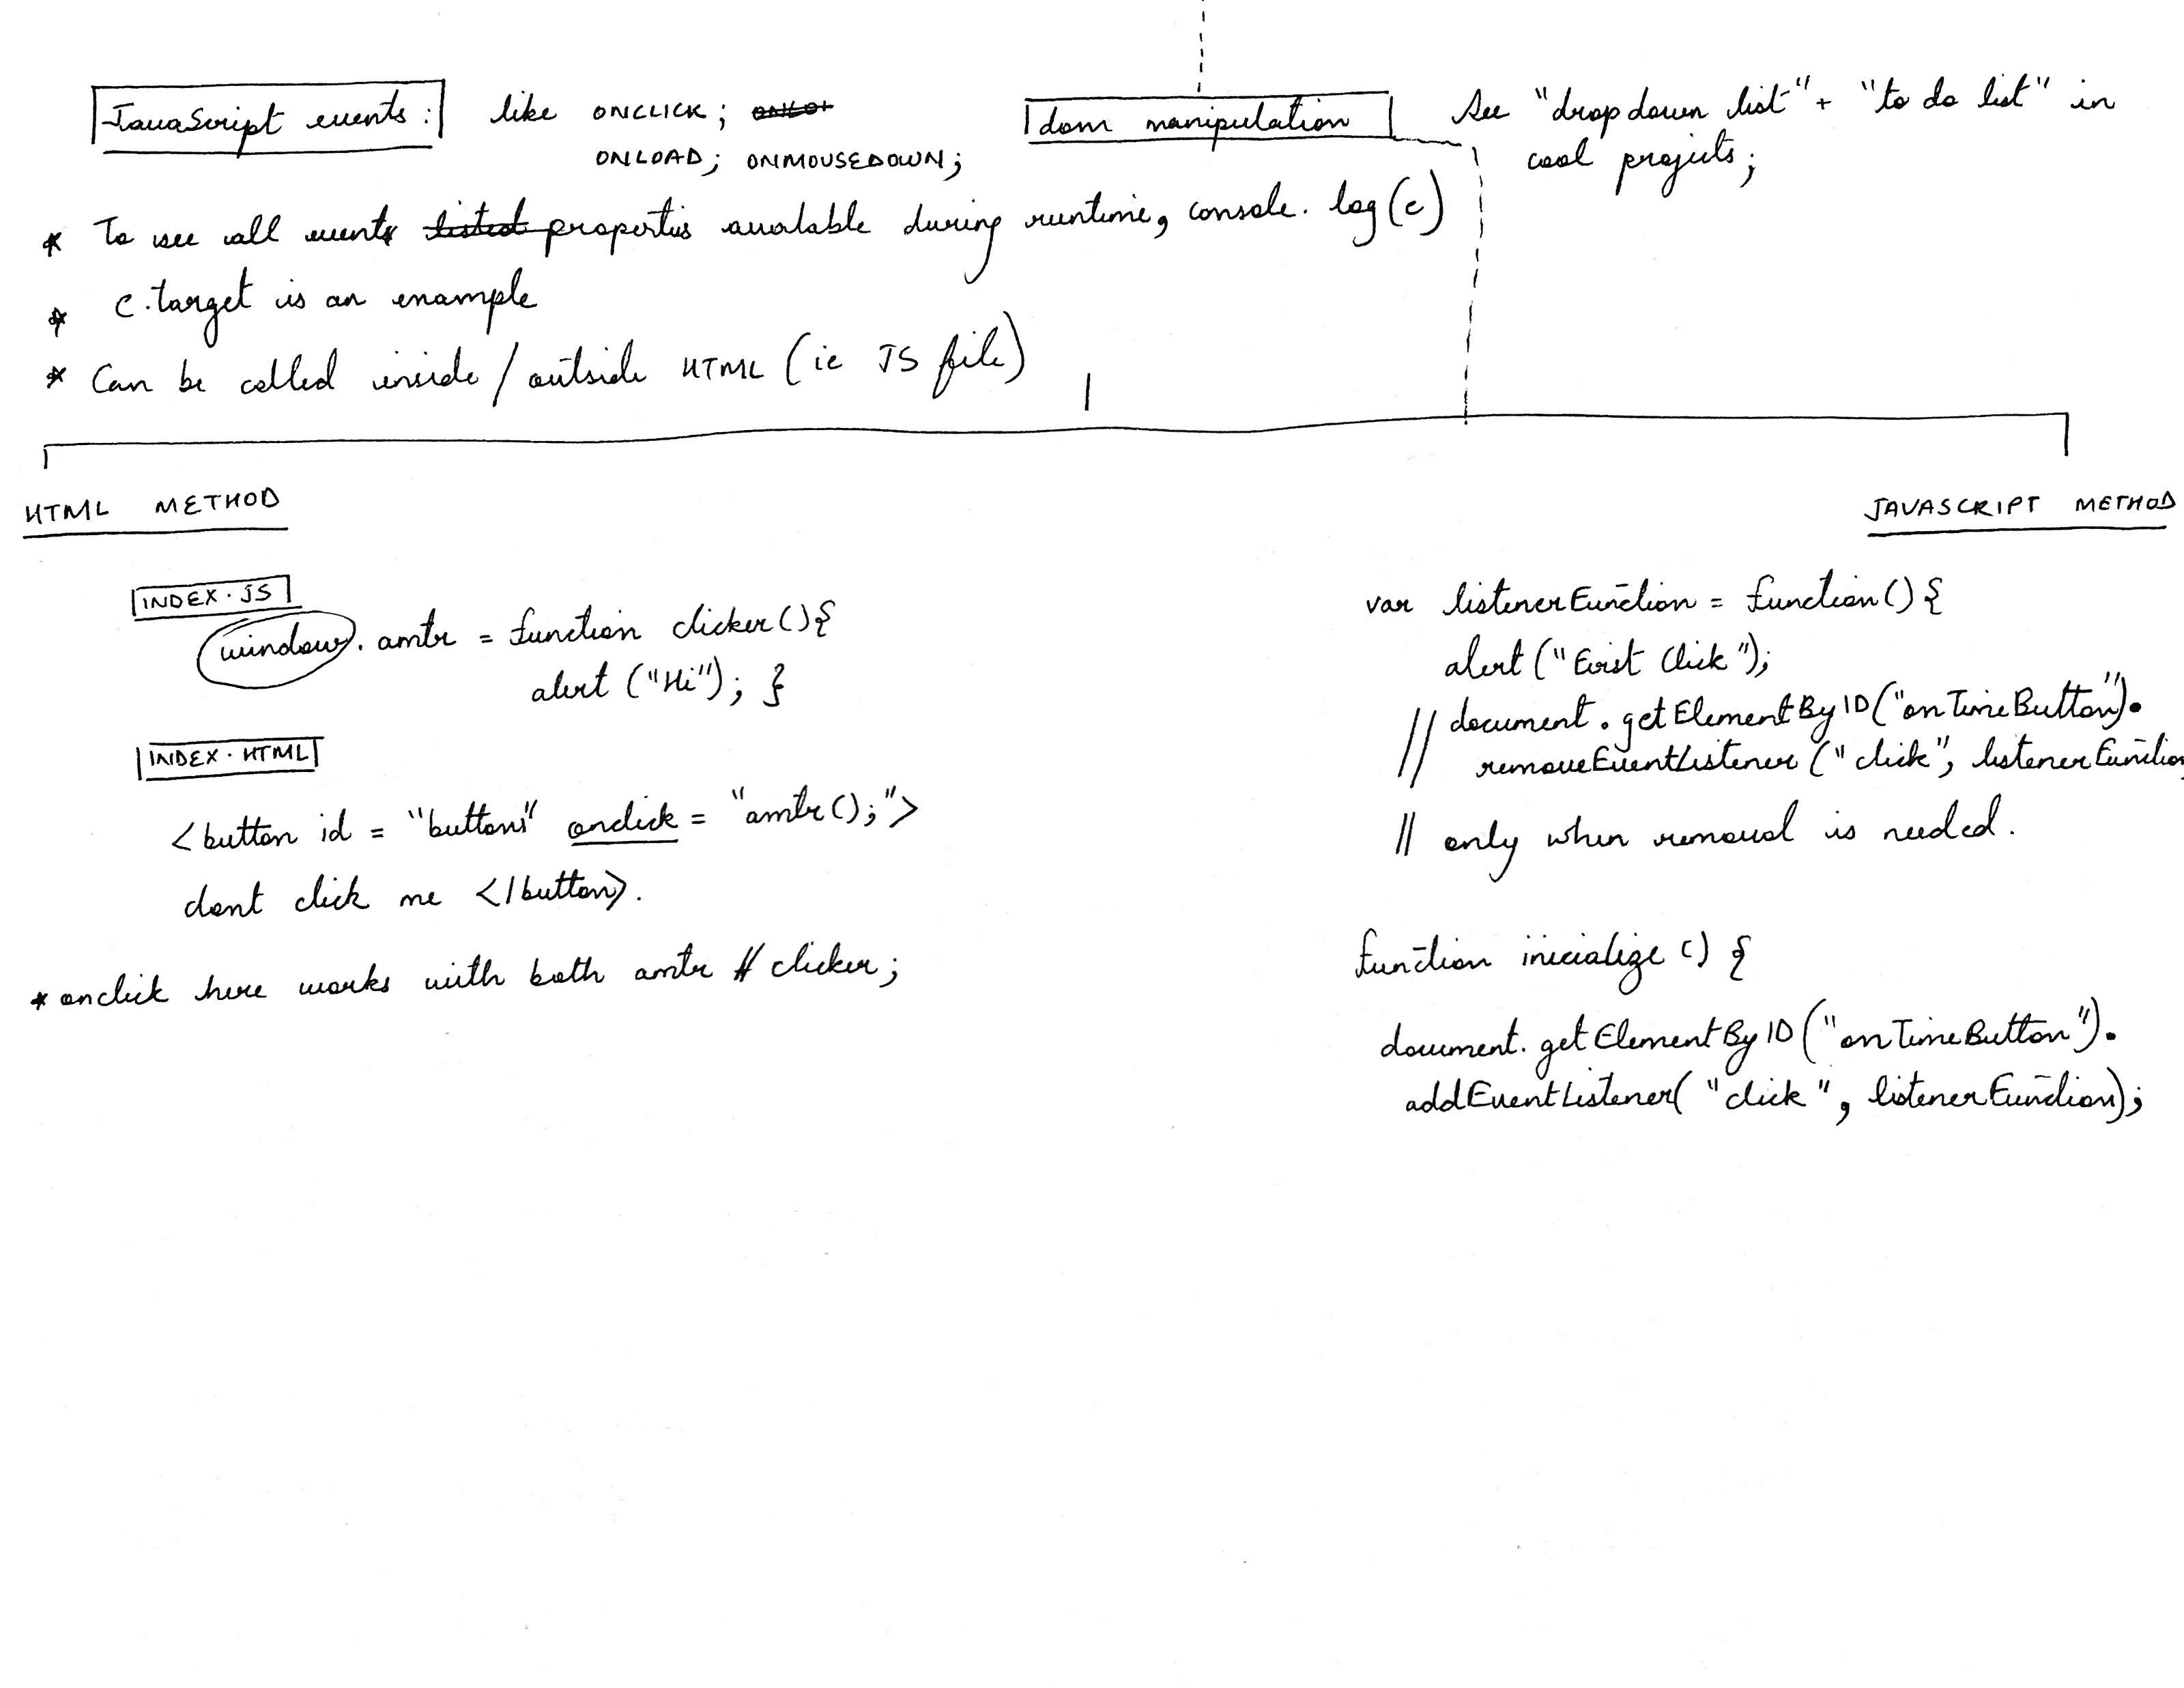 JavaScript events :
like ONCLICK;
ONLOAD; ONMOUSEDOWN;
dom manipulation
See "drop down list" + "to do list" in
cool projects;
* To see all events properties available during runtime, console. log(e)
* e.target is an example
* Can be called inside / outside HTML (ie JS file)
HTML METHOD
INDEX.JS
window. amtr = function clicker(){
alert ("Hi"); }
INDEX.HTML
<button id = "button" onclick = "amtr();">
dont click me </button>.
* onclick here works with both amtr // clicker;
JAVASCRIPT METHOD
var listenerFunction = function() {
alert ("First Click");
// document. getElementByID("onTimeButton").
removeEventListener ("click", listenerFunction
// only when removal is needed.
function inicialize () {
document. getElementByID ("onTimeButton").
addEventListener( "click", listenerFunction);